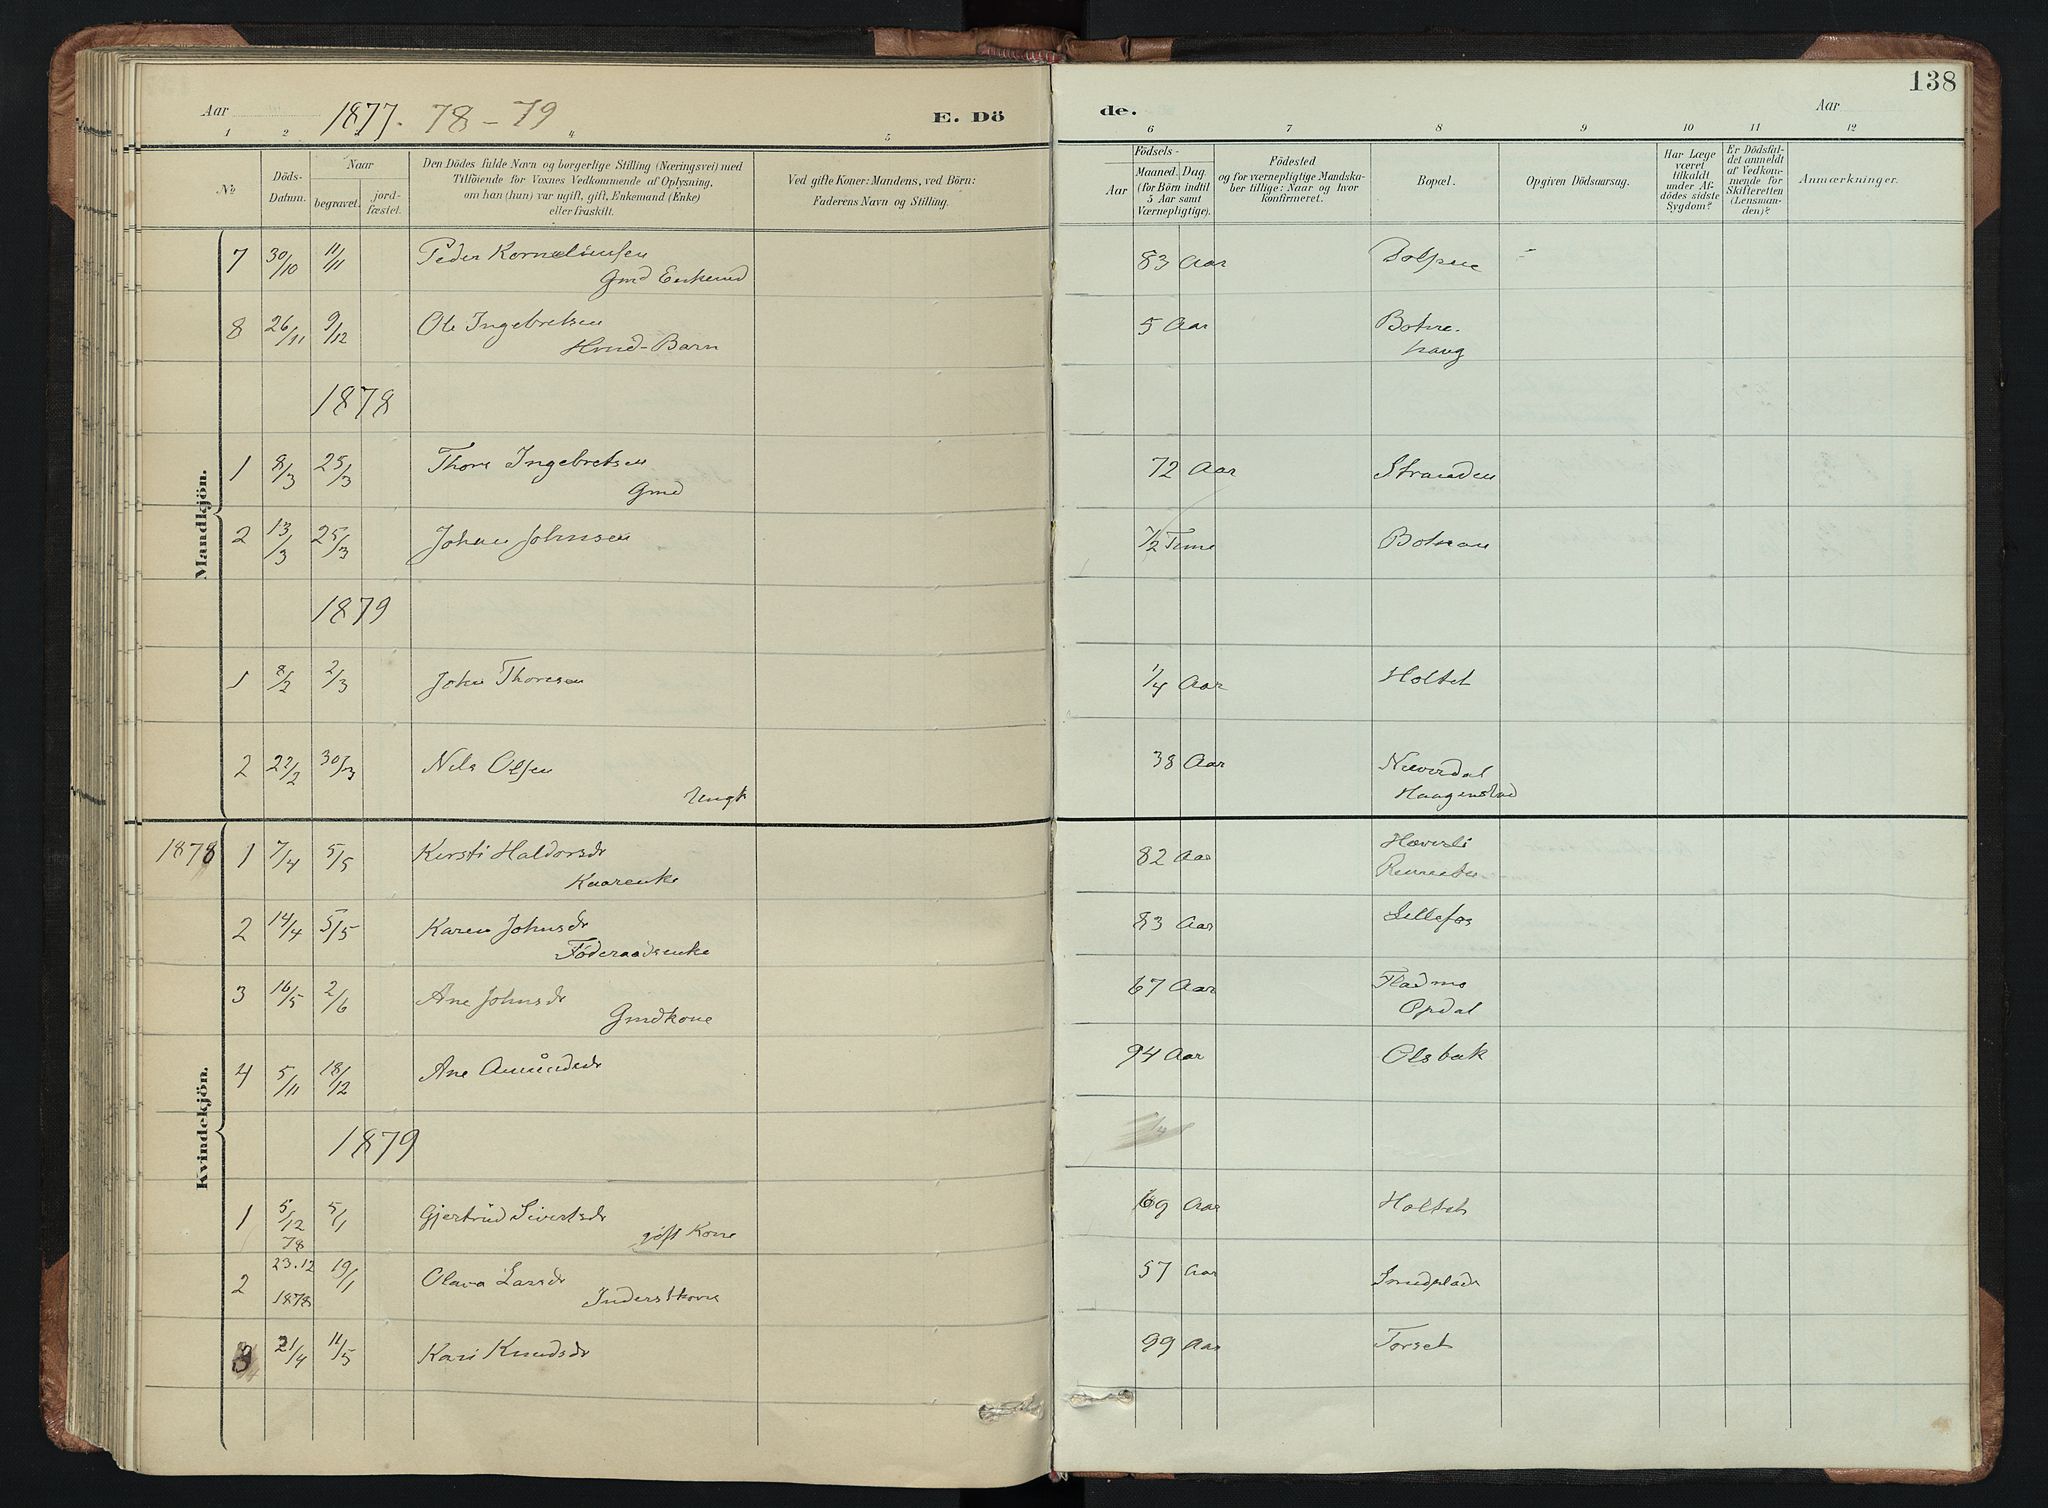 138
Aar 1877. 78 - 79 E. Dö
de. Aar
1 2 4 5 6 7 8 9 10 11 12
No
Döds-
Datum.
Naar
begravet.
jord-
fæstet.
Den Dödes fulde Navn og borgerlige Stilling (Næringsvei) med
Tilföiende for Voxnes Vedkommende af Oplysning,
om han (hun) var ugift, gift, Enkemand (Enke)
eller fraskilt.
Ved gifte Koner: Mandens, ved Börn:
Faderens Navn og Stilling.
Födsels-
Aar
Maaned. Dag
(for Börn indtil
5 Aar samt
Værnepligtige).
Födested
og for værnepligtige Mandska-
ber tillige: Naar og hvor
konfirmeret.
Bopæl.
Opgiven Dödsaarsag.
Har Læge
været
tilkaldt
under Af-
dödes sidste
Sygdom?
Er Dödsfal-
det anmeldt
af Vedkom-
mende for
Skifteretten
(Lensman-
den)?
Anmærkninger.
Mandkjön.
7 30/10 11/11 Peder Korneliusen 83 Aar
Gmd Enkemd
8 26/11 9/12 Ole Ingebretsen 5 Aar Botne.
Hmd-Barn haug
1878
1 8/3 25/3 Thore Ingebretsen 72 Aar Stranden
Gmd
2 13/3 25/3 Johan Johnsen 1/2 Time Botnan
1879
1 8/2 2/3 John Thoresen 1/4 Aar Holtet
2 22/2 30/3 Nils Olsen 38 Aar Næverdal
Ungk Haagenstad
Kvindekjön.
1878 1 7/4 5/5 Kersti Haldorsdr 82 Aar Hæverli
Kaarenke
2 14/4 5/5 Karen Johnsdr 83 Aar Lillefos
Föderaadsenke
3 16/5 2/6 Ane Johnsdr 67 Aar Fladmo
Gmdkone Opdal
4 5/11 18/12 Ane Amundsdr 94 Aar Olsbak
1879
1 5/12 78 5/1 Gjertrud Sivertsdr 69 Aar Holtet
gift Kone
2 23.12 1878 19/1 Olava Larsdr 57 Aar Smedplads
Inderstkone
3 21/4 11/5 Kari Knudsdr 99 Aar Torset